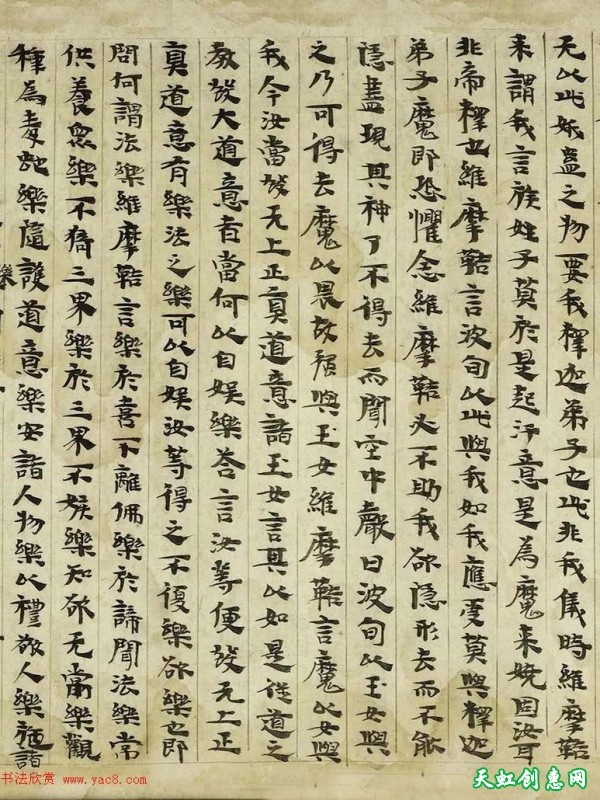 无以此妖蠱之物要我釋迦弟子也此非我儀時維摩詰
来謂我言族姓子莫於是起汙意是為魔来嬈固汝耳
非帝釋也維摩詰言波旬以此與我如我應受莫與釋迦
弟子魔即恐懼念維摩詰必不助我欲隱形去而不能
隱盡現其神了不得去而聞空中聲曰波旬以玉女與
之乃可得去魔以畏故强與玉女維摩詰言魔以女與
我今汝當發无上正真道意諸玉女言其以如是従道之
教發大道意者當何以自娛樂荅言汝等便發无上正
真道意有樂法之樂可以自娛汝等得之不復樂欲樂也即
問何謂法樂維摩詰言樂於喜不離佛樂於諦聞法樂常
供養眾樂不猗三界樂於三界不嫉樂知欲无常樂觀
種為毒蛇樂隨護道意樂安諸人物樂以禮敬人樂施諸
书法欣赏 www.yac8.com
天虹创惠网